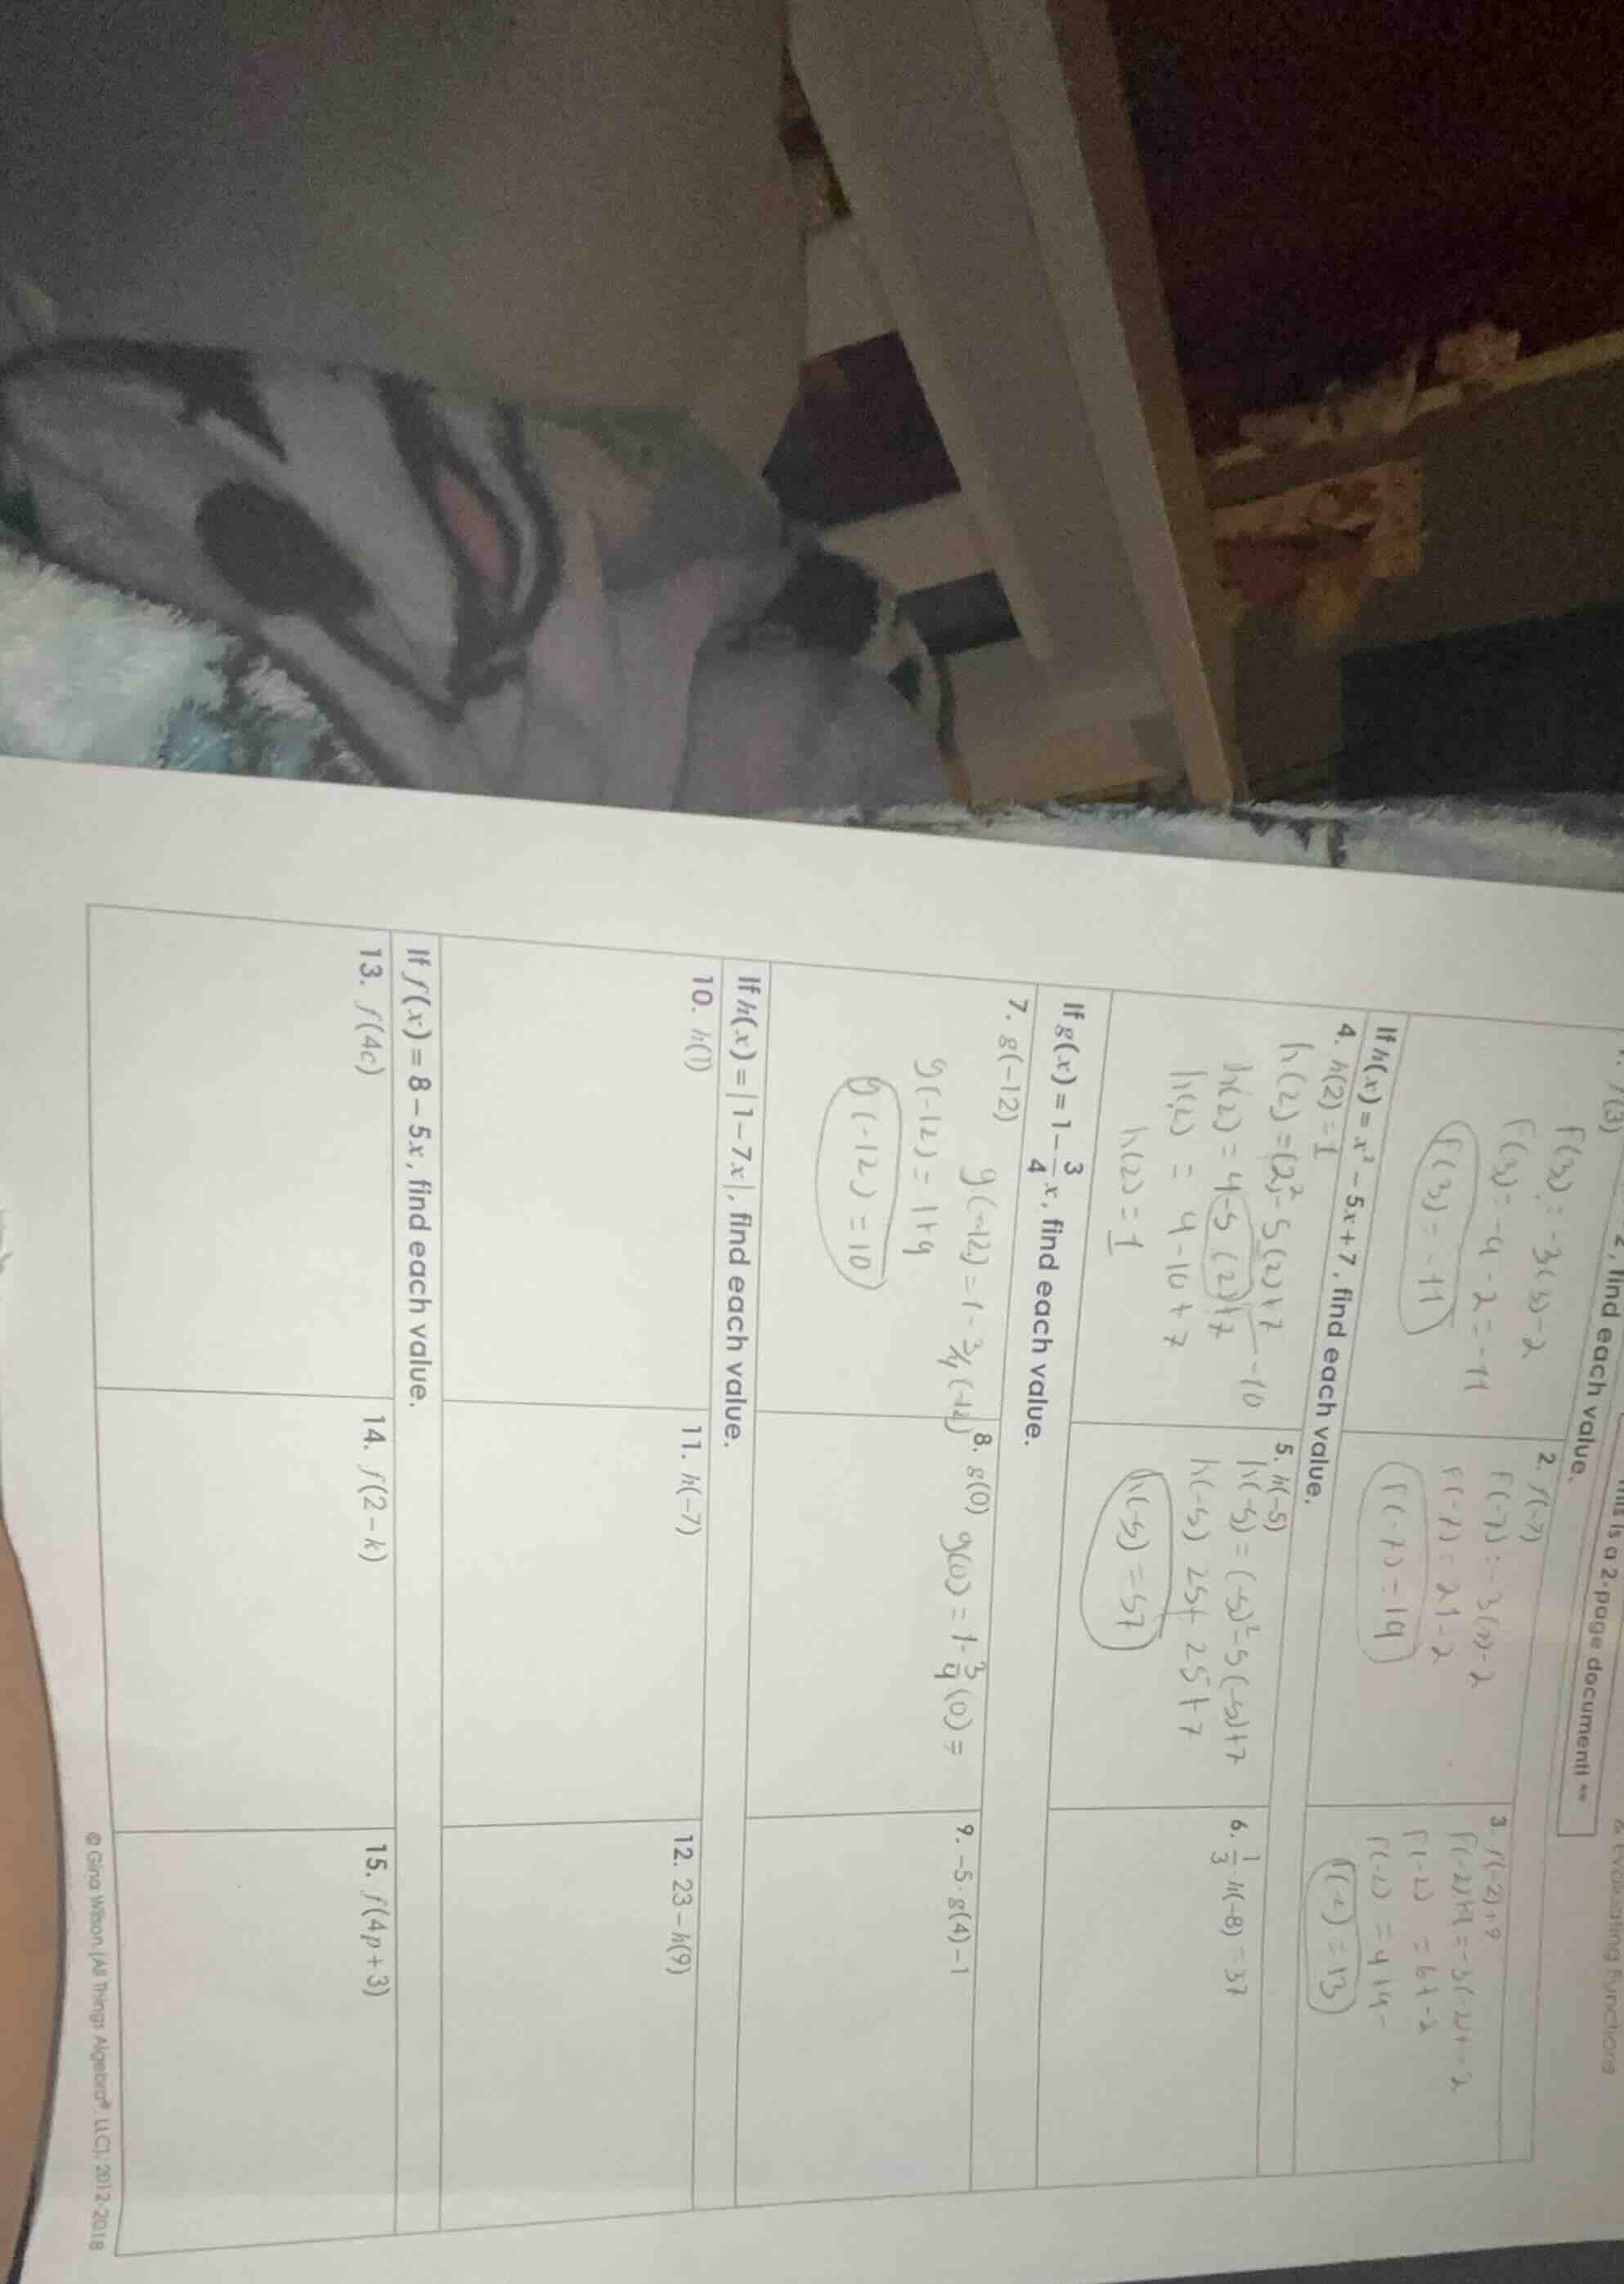 6: Evaluating Functions
This is a 2-page document! **
2, find each value.
1. f(3)
F(3) = -3(3)-2
F(3) = -9 - 2 = -11
F(3) = -11
2. f(-7)
F(-7) = -3(-7)-2
F(-7) = 21-2
F(-7) = 19
3. f(-2)+9
F(-2)+9 = -3(-2)+-2
F(-2) = 6+-2
F(-2) = 4+9
F(-2) = 13
If h(x) = x² - 5x + 7, find each value.
4. h(2) = 1
h(2) = (2)² - 5(2)+7 -10
h(2) = 4-5(2)+7
h(2) = 4-10+7
h(2) = 1
5. h(-5)
h(-5) = (-5)²-5(-5)+7
h(-5) 25+25+7
h(-5) = 57
6. 1/3 · h(-8) = 37
If g(x) = 1 - 3/4 x, find each value.
7. g(-12)
g(-12) = 1 - 3/4(-12)
g(-12) = 1+9
g(-12) = 10
8. g(0)
g(0) = 1-3/4(0) =
9. -5·g(4)-1
If h(x) = |1 - 7x|, find each value.
10. h(1)
11. h(-7)
12. 23 - h(9)
If f(x) = 8 - 5x, find each value.
13. f(4c)
14. f(2 - k)
15. f(4p + 3)
© Gina Wilson (All Things Algebra®, LLC), 2012-2018